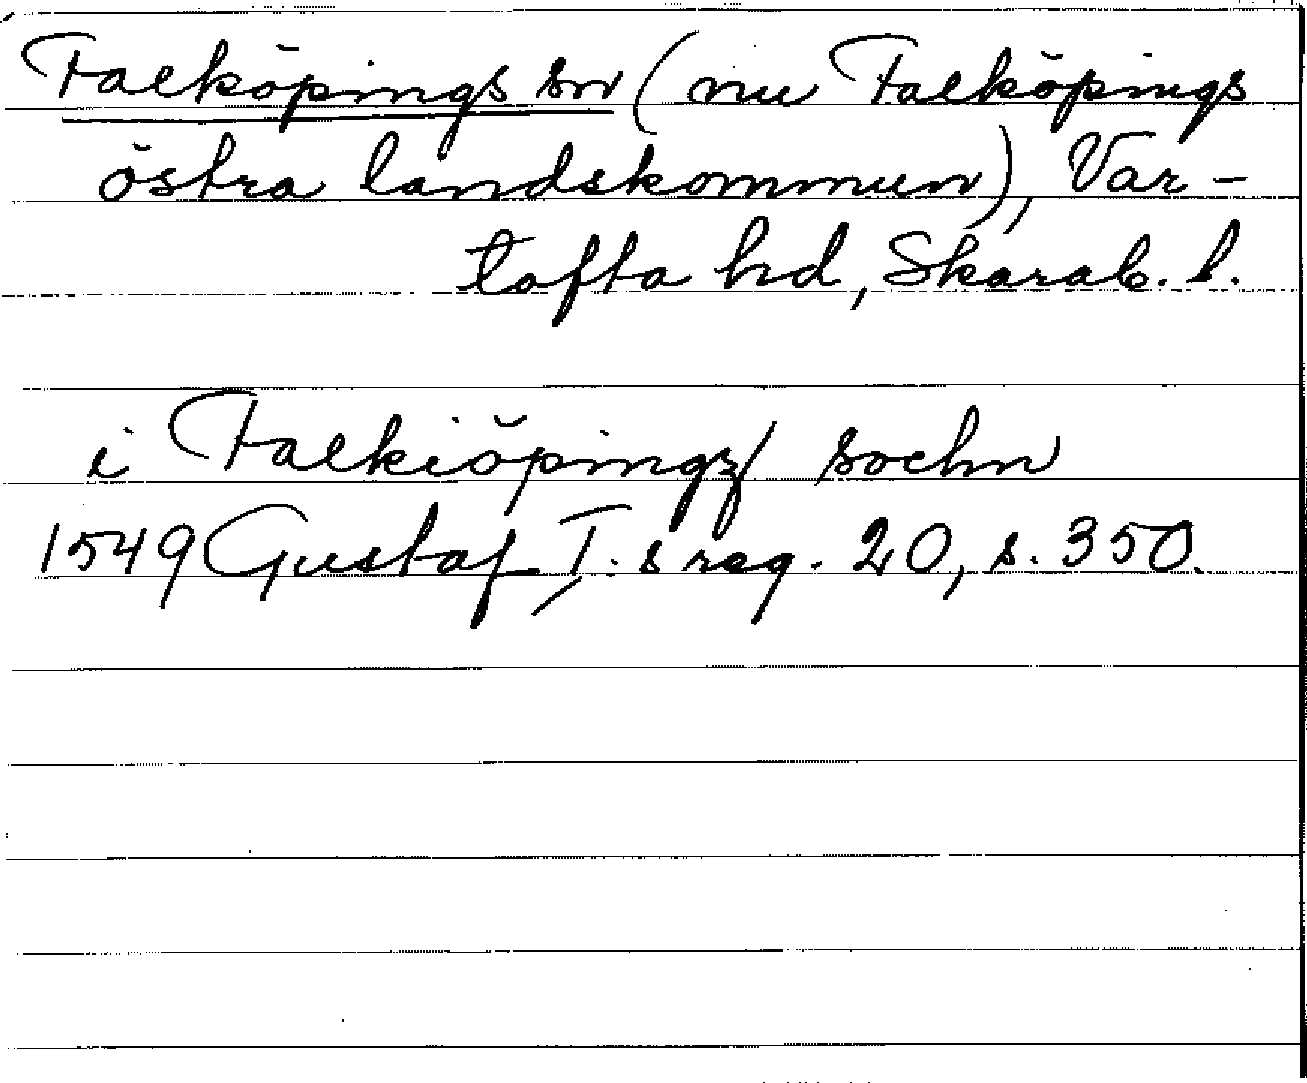 Falköpings sn (nu Falköpings
östra landskommun), Var-
tofta hd, Skarab. l.
i Falkiöpingz/ sochn
1549 Gustaf I.s reg. 20, s. 350.